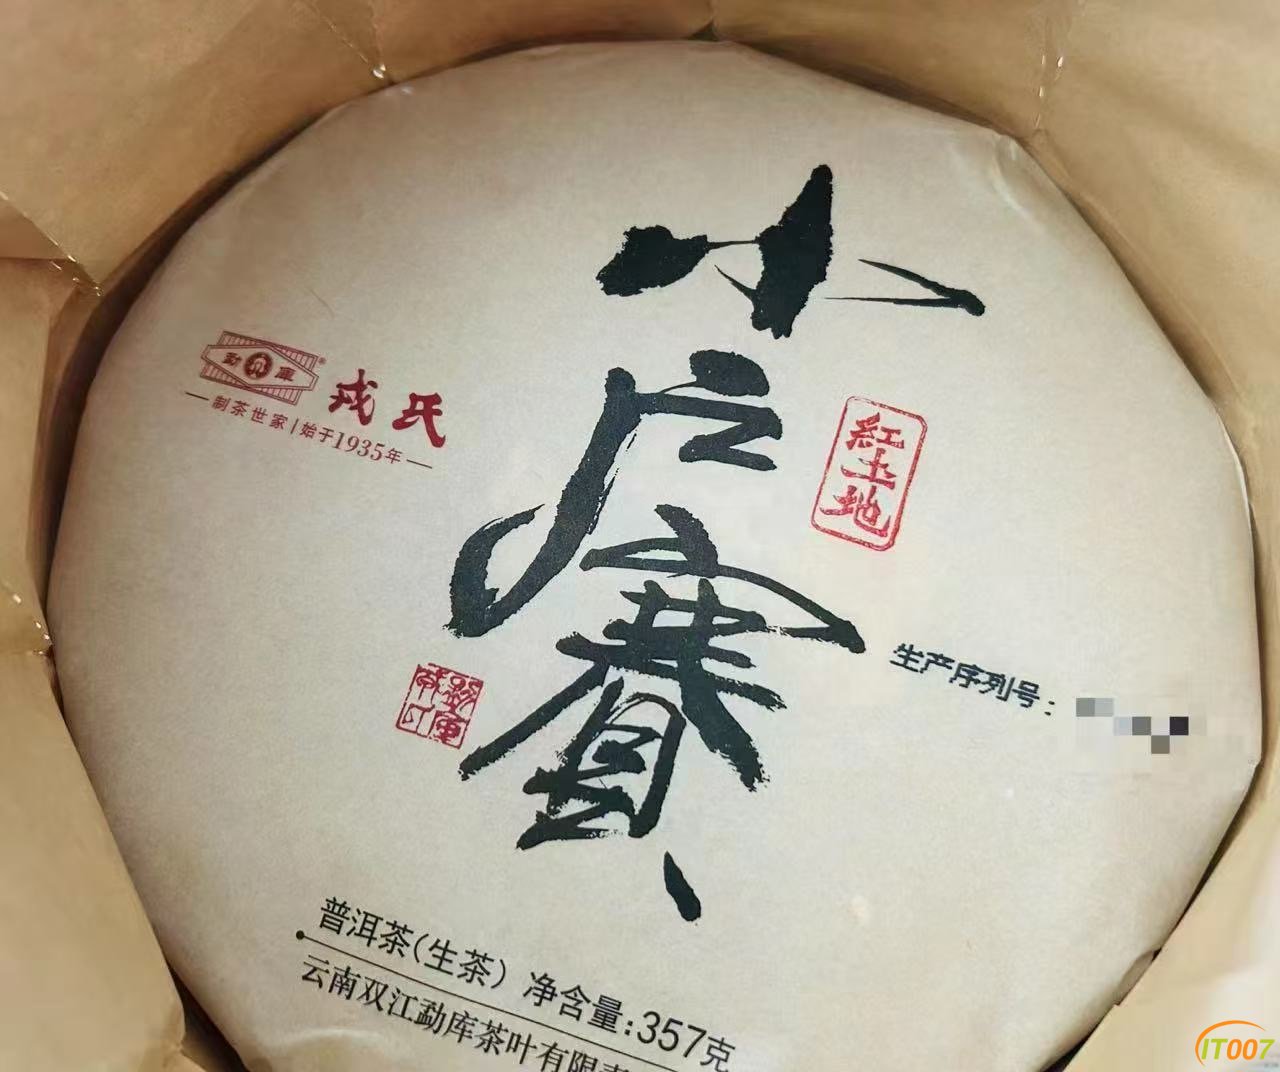 小户賽
紅土地
勐庫
戎氏
制茶世家|始于1935年
生产序列号:
普洱茶(生茶) 净含量:357克
云南双江勐库茶叶有限责
IT007